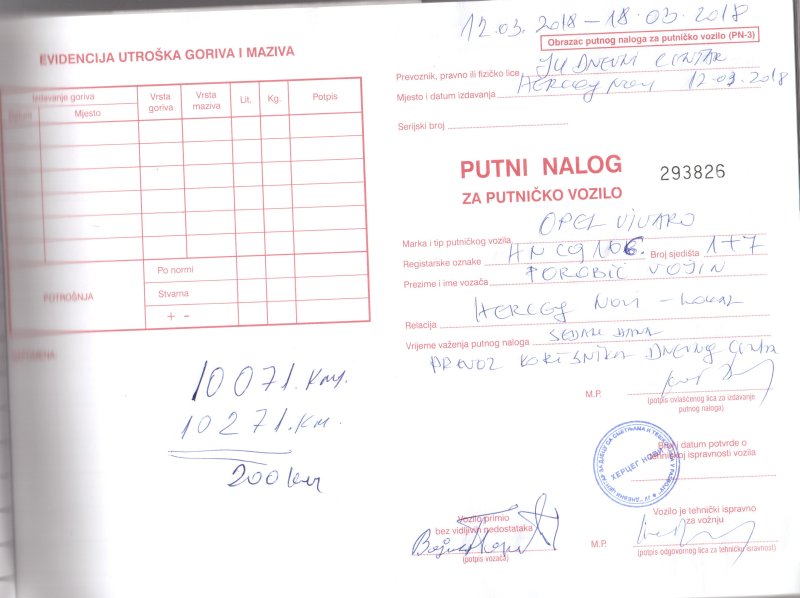 EVIDENCIJA UTROŠKA GORIVA I MAZIVA
Izdavanje goriva
Datum
Mjesto
Vrsta goriva
Vrsta maziva
Lit.
Kg.
Potpis
POTROŠNJA
Po normi
Stvarna
+ -
10071.km.
10271.km.
200 km
12.03.2018 – 18.03.2018
Obrazac putnog naloga za putničko vozilo (PN-3)
Prevoznik, pravno ili fizičko lice JU DNEVNI CENTAR
Mjesto i datum izdavanja HERCEG NOVI 12.03.2018
Serijski broj
PUTNI NALOG
293826
ZA PUTNIČKO VOZILO
Marka i tip putničkog vozila OPEL VIVARO
Registarske oznake HN CG 166. Broj sjedišta 1+7
Prezime i ime vozača POROBIĆ VOJIN
Relacija HERCEG NOVI – LOKAL
Vrijeme važenja putnog naloga SEDAM DANA
PREVOZ KORISNIKA DNEVNOG CENTRA
M.P.
(potpis ovlašćenog lica za izdavanje
putnog naloga)
ХЕРЦЕГ НОВИ
Broj i datum potvrde o
tehničkoj ispravnosti vozila
Vozilo primio
bez vidljivih nedostataka
(potpis vozača)
Vozilo je tehnički ispravno
za vožnju
M.P.
(potpis odgovornog lica za tehničku ispravnost)